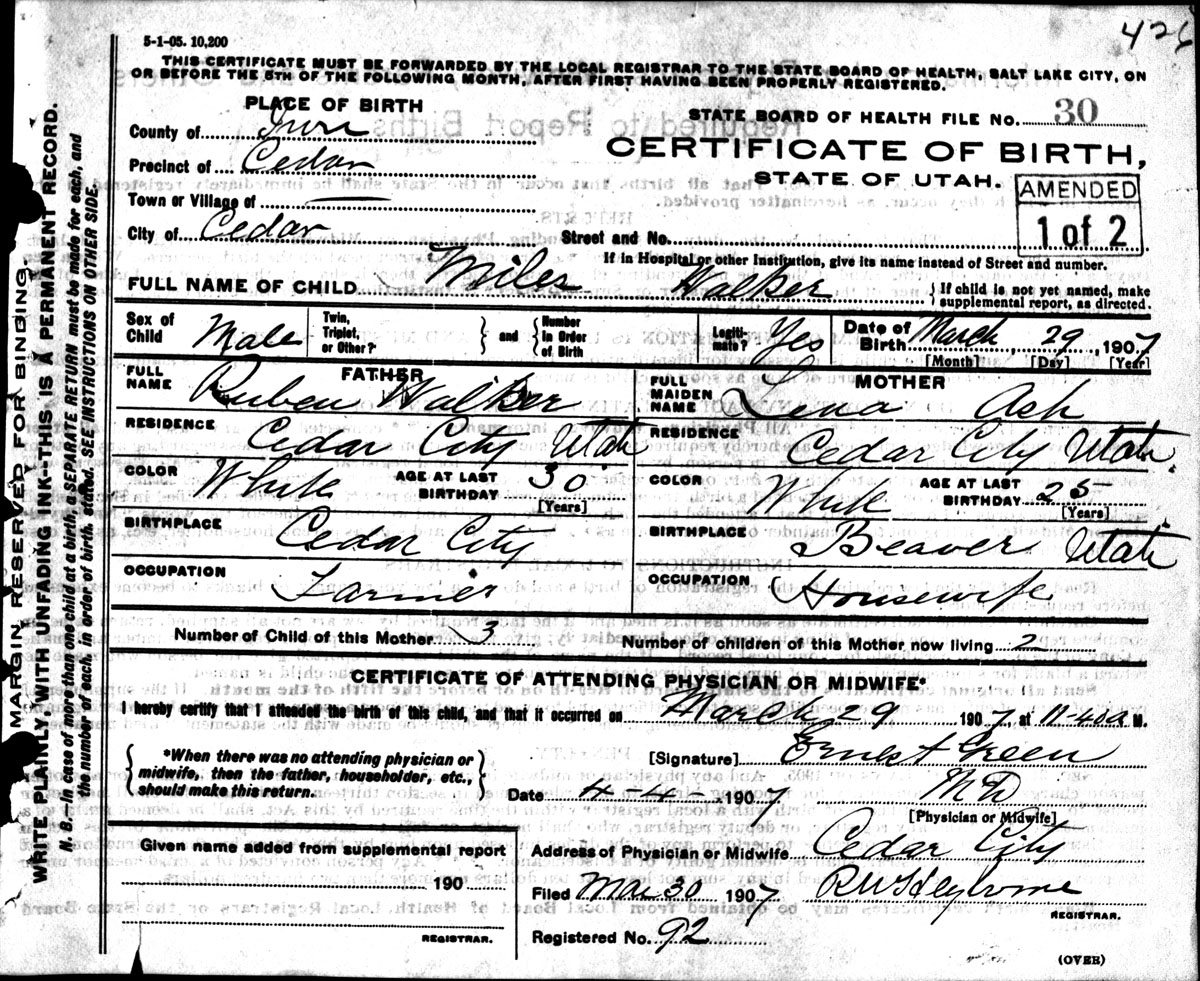 426
5-1-05. 10,200
THIS CERTIFICATE MUST BE FORWARDED BY THE LOCAL REGISTRAR TO THE STATE BOARD OF HEALTH, SALT LAKE CITY, ON
OR BEFORE THE 5TH OF THE FOLLOWING MONTH, AFTER FIRST HAVING BEEN PROPERLY REGISTERED.
PLACE OF BIRTH
STATE BOARD OF HEALTH FILE NO. 30
County of Iron
CERTIFICATE OF BIRTH,
Precinct of Cedar
STATE OF UTAH.
AMENDED
1 of 2
Town or Village of
City of Cedar Street and No.
If in Hospital or other Institution, give its name instead of Street and number.
FULL NAME OF CHILD Miles Walker {If child is not yet named, make supplemental report, as directed.
Sex of Child Male Twin, Triplet, or Other? } and { Number in Order of Birth Legitimate? Yes Date of Birth March 29, 1907
[Month] [Day] [Year]
FATHER
FULL NAME Ruben Walker
RESIDENCE Cedar City Utah
COLOR White AGE AT LAST BIRTHDAY 30
[Years]
BIRTHPLACE Cedar City
OCCUPATION Farmer
MOTHER
FULL MAIDEN NAME Lena Ash
RESIDENCE Cedar City Utah.
COLOR White AGE AT LAST BIRTHDAY 25
[Years]
BIRTHPLACE Beaver Utah
OCCUPATION Housewife
Number of Child of this Mother 3 Number of children of this Mother now living 2
CERTIFICATE OF ATTENDING PHYSICIAN OR MIDWIFE*
I hereby certify that I attended the birth of this child, and that it occurred on March 29 1907, at 11-40a M.
{*When there was no attending physician or midwife, then the father, householder, etc., should make this return.}
[Signature] Ernest Green
Date 4-4- 1907 MD
[Physician or Midwife]
Given name added from supplemental report
190
REGISTRAR.
Address of Physician or Midwife Cedar City
Filed Mar 30 1907
REGISTRAR.
Registered No. 92
(OVER)
MARGIN RESERVED FOR BINDING.
WRITE PLAINLY WITH UNFADING INK--THIS IS A PERMANENT RECORD.
N. B.--In case of more than one child at a birth, a SEPARATE RETURN must be made for each, and
the number of each, in order of birth, stated. SEE INSTRUCTIONS ON OTHER SIDE.